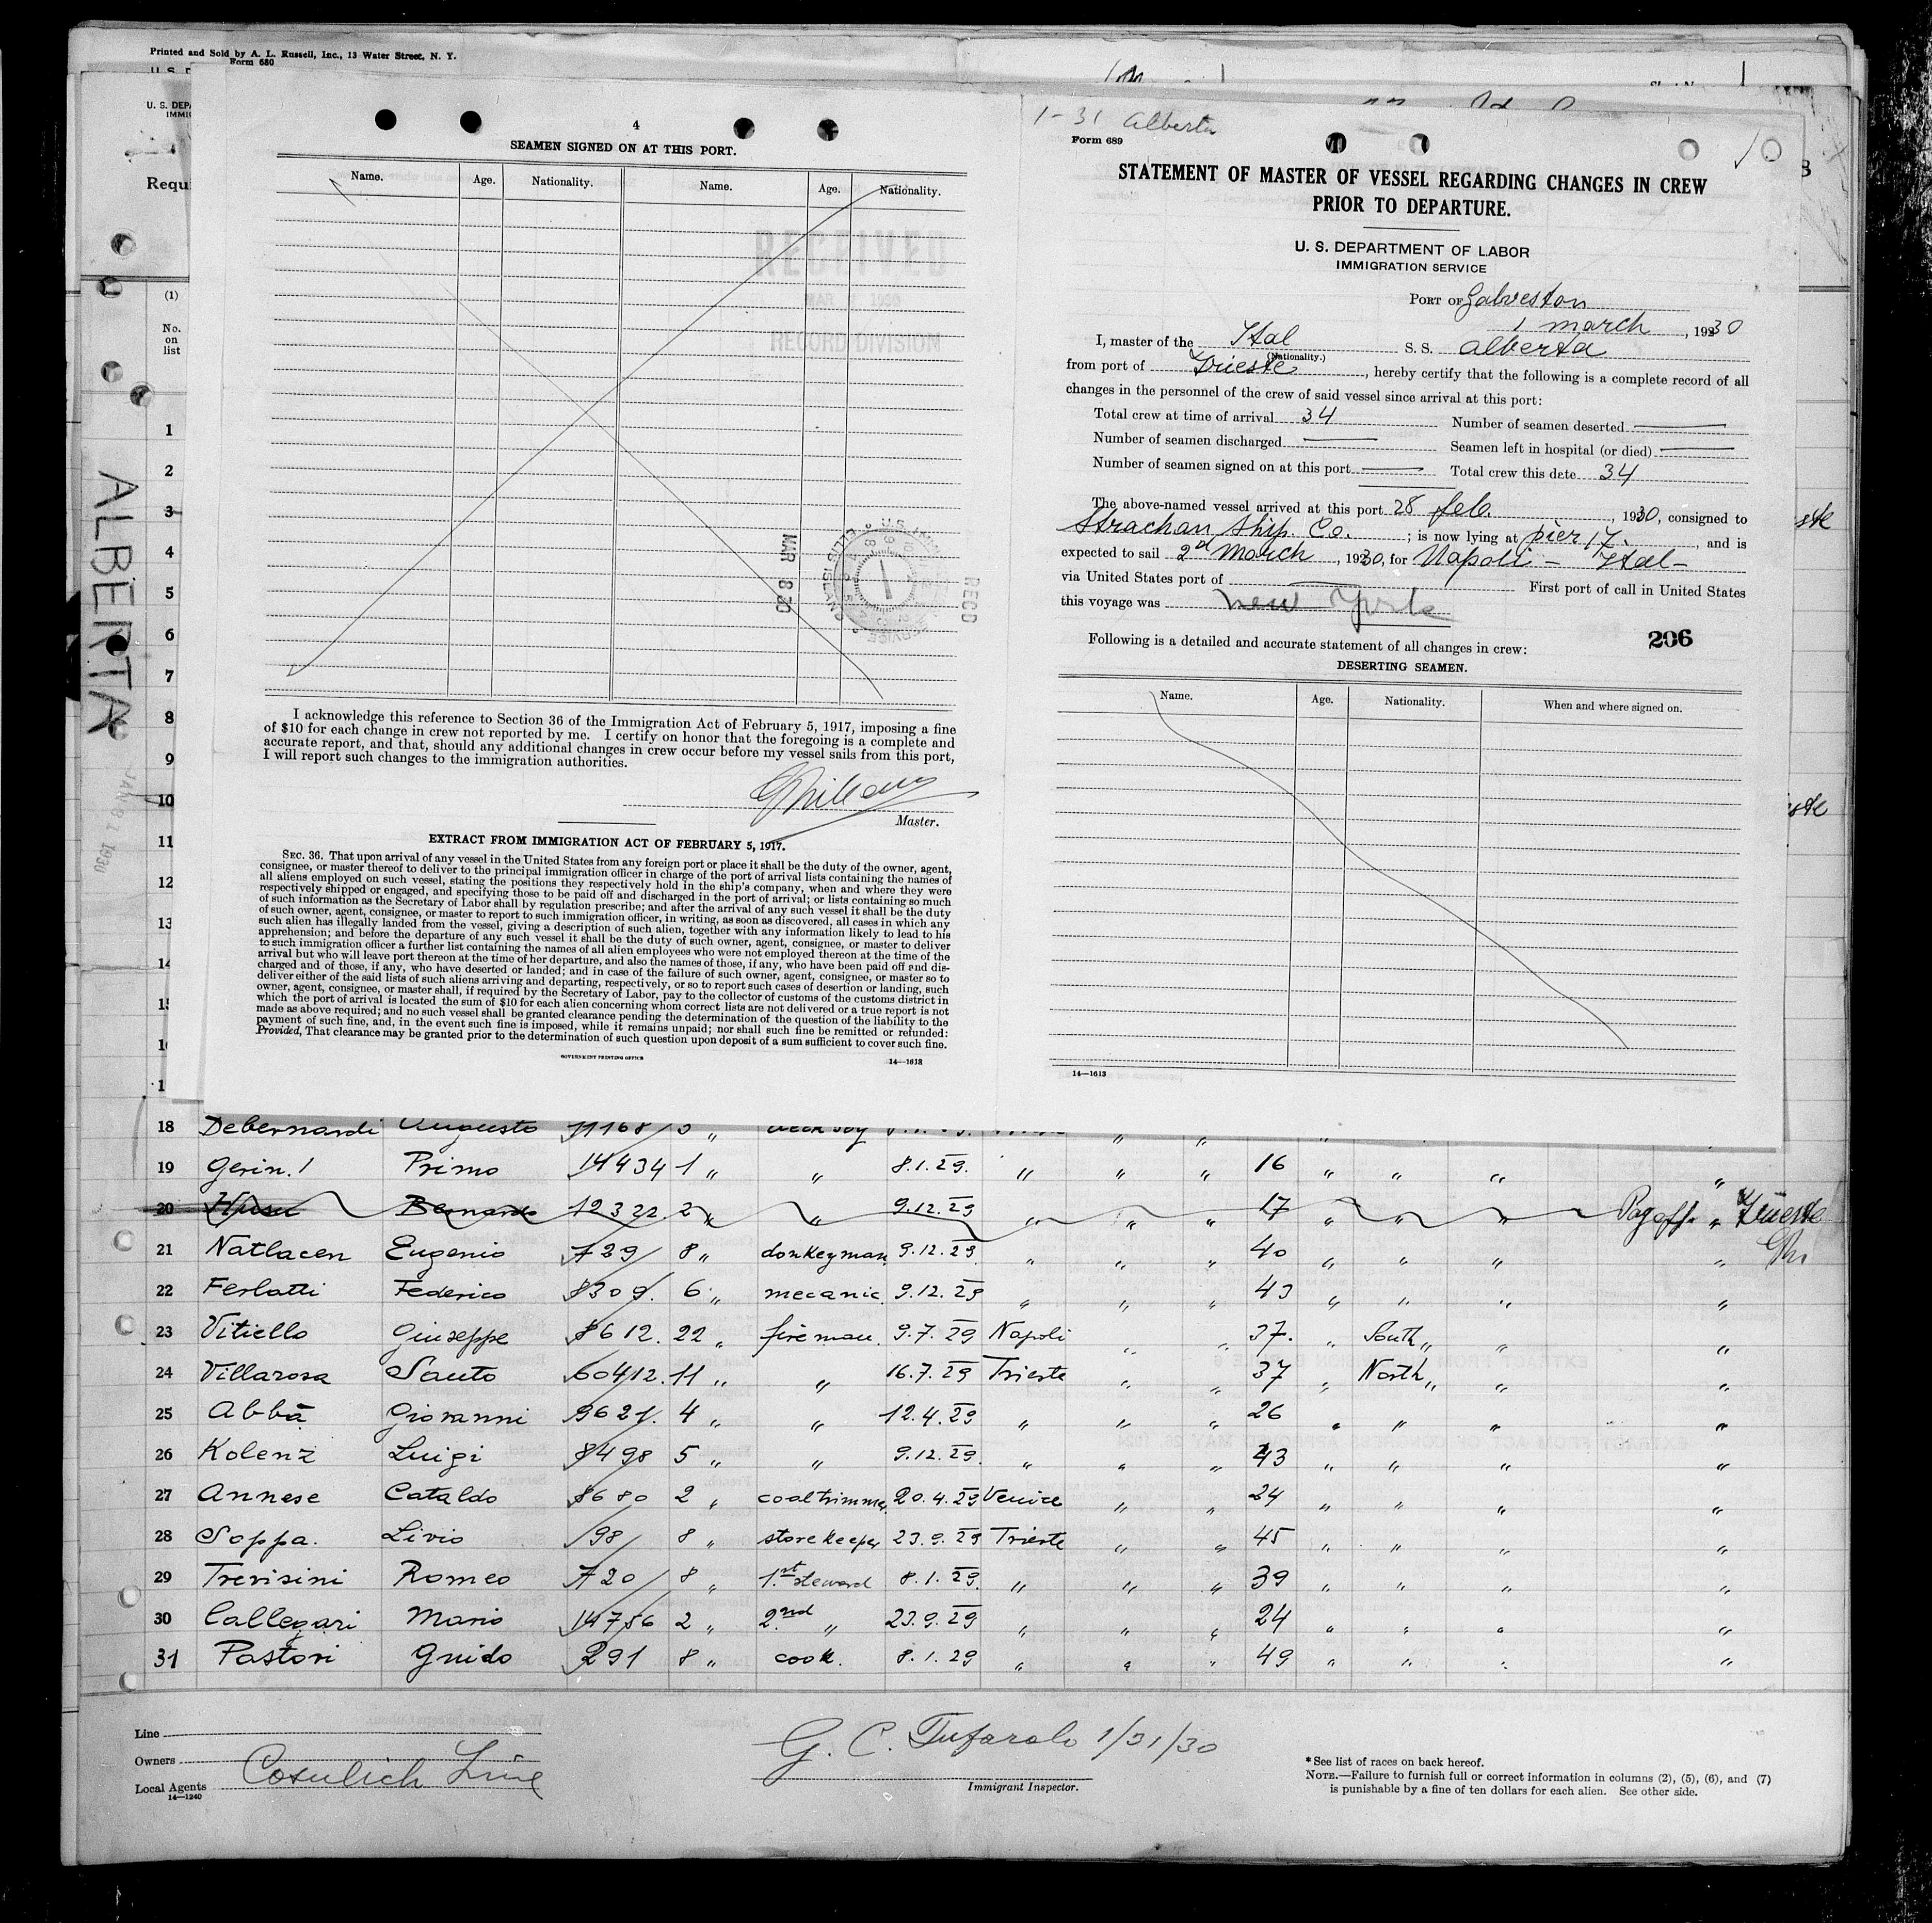 Printed and Sold by A. L. Russell, Inc., 13 Water Street, N. Y.
Form 680
U. S. DEPA
IMMIG
Requi
(1)
No.
on
list
1
2
3
4
5
6
7
8
9
10
11
12
13
14
ALBERTA
JAN 31 1930
4
SEAMEN SIGNED ON AT THIS PORT.
Name. Age. Nationality. Name. Age. Nationality.
RECEIVED
MAR 1930
RECORD DIVISION
MAR 8 30
RECD
I acknowledge this reference to Section 36 of the Immigration Act of February 5, 1917, imposing a fine
of $10 for each change in crew not reported by me. I certify on honor that the foregoing is a complete and
accurate report, and that, should any additional changes in crew occur before my vessel sails from this port,
I will report such changes to the immigration authorities.
Master.
EXTRACT FROM IMMIGRATION ACT OF FEBRUARY 5, 1917.
SEC. 36. That upon arrival of any vessel in the United States from any foreign port or place it shall be the duty of the owner, agent,
consignee, or master thereof to deliver to the principal immigration officer in charge of the port of arrival lists containing the names of
all aliens employed on such vessel, stating the positions they respectively hold in the ship's company, when and where they were
respectively shipped or engaged, and specifying those to be paid off and discharged in the port of arrival; or lists containing so much
of such information as the Secretary of Labor shall by regulation prescribe; and after the arrival of any such vessel it shall be the duty
of such owner, agent, consignee, or master to report to such immigration officer, in writing, as soon as discovered, all cases in which any
such alien has illegally landed from the vessel, giving a description of such alien, together with any information likely to lead to his
apprehension; and before the departure of any such vessel it shall be the duty of such owner, agent, consignee, or master to deliver
to such immigration officer a further list containing the names of all alien employees who were not employed thereon at the time of the
arrival but who will leave port thereon at the time of her departure, and also the names of those, if any, who have been paid off and dis-
charged and of those, if any, who have deserted or landed; and in case of the failure of such owner, agent, consignee, or master so to
deliver either of the said lists of such aliens arriving and departing, respectively, or so to report such cases of desertion or landing, such
owner, agent, consignee, or master shall, if required by the Secretary of Labor, pay to the collector of customs of the customs district in
which the port of arrival is located the sum of $10 for each alien concerning whom correct lists are not delivered or a true report is not
made as above required; and no such vessel shall be granted clearance pending the determination of the question of the liability to the
payment of such fine, and, in the event such fine is imposed, while it remains unpaid; nor shall such fine be remitted or refunded:
Provided, That clearance may be granted prior to the determination of such question upon deposit of a sum sufficient to cover such fine.
GOVERNMENT PRINTING OFFICE 14—1613
1-31 Alberta
Form 689
STATEMENT OF MASTER OF VESSEL REGARDING CHANGES IN CREW
PRIOR TO DEPARTURE.
U. S. DEPARTMENT OF LABOR
IMMIGRATION SERVICE
PORT OF Galveston
1 march, 1930
I, master of the Ital S. S. Alberta
(Nationality.)
from port of Trieste, hereby certify that the following is a complete record of all
changes in the personnel of the crew of said vessel since arrival at this port:
Total crew at time of arrival 34 Number of seamen deserted
Number of seamen discharged Seamen left in hospital (or died)
Number of seamen signed on at this port Total crew this date 34
The above-named vessel arrived at this port 28 feb. , 1930, consigned to
Strachan Ship. Co. ; is now lying at pier 17, and is
expected to sail 2d March, 1930, for Napoli - Ital-
via United States port of First port of call in United States
this voyage was New York
Following is a detailed and accurate statement of all changes in crew: 206
DESERTING SEAMEN.
Name. Age. Nationality. When and where signed on.
14—1613
18 Debernardi Augusto 11168 5 " deck boy
19 Gerin. 1 Primo 14434 1 " " 8.1.29. " " " 16 " " " "
20 Bernardo 12322 2 " " 9.12.29 " " " 17 " " " Pay off " Trieste
21 Natlacen Eugenio 729 8 " donkeyman 9.12.29 " " " 40 " " " "
22 Ferlatti Federico 8309. 6 " mecanic. 9.12.29 " " " 43 " " " "
23 Vitiello Giuseppe 8612. 22 " fireman. 9.7.29 Napoli " " 37. " South " " "
24 Villarosa Santo 60412. 11 " " 16.7.29 Trieste " " 37 " North " " "
25 Abbà Giovanni 9621. 4 " " 12.4.29 " " " 26 " " " "
26 Kolenz Luigi 8498 5 " " 9.12.29. " " " 43 " " " "
27 Annese Cataldo 8680 2 " coaltrimmer 20.4.29 Venice " " 24 " " " "
28 Soppa. Livio 198 8 " storekeeper 23.9.29 Trieste " " 45 " " " "
29 Trevisini Romeo 720 8 " 1.st steward 8.1.29. " " " 39 " " " "
30 Callegari Mario 14756 2 " 2.nd " 23.9.29 " " " 24 " " " "
31 Pastori Guido 291 8 " cook. 8.1.29 " " " 49 " " " "
Line
Owners
Local Agents Cosulich Line
14—1240
G. C. Tufarolo 1/31/30
Immigrant Inspector.
*See list of races on back hereof.
NOTE.—Failure to furnish full or correct information in columns (2), (5), (6), and (7)
is punishable by a fine of ten dollars for each alien. See other side.